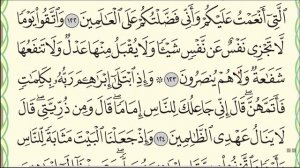 ٱلَّتِىٓ أَنْعَمْتُ عَلَيْكُمْ وَأَنِّى فَضَّلْتُكُمْ عَلَى ٱلْعَٰلَمِينَ ١٢٢ وَٱتَّقُوا۟ يَوْمًا
لَّا تَجْزِى نَفْسٌ عَن نَّفْسٍ شَيْـًٔا وَلَا يُقْبَلُ مِنْهَا عَدْلٌ وَلَا تَنفَعُهَا
شَفَٰعَةٌ وَلَا هُمْ يُنصَرُونَ ١٢٣ ۞ وَإِذِ ٱبْتَلَىٰٓ إِبْرَٰهِـۧمَ رَبُّهُۥ بِكَلِمَٰتٍ
فَأَتَمَّهُنَّ ۖ قَالَ إِنِّى جَاعِلُكَ لِلنَّاسِ إِمَامًا ۖ قَالَ وَمِن ذُرِّيَّتِى ۖ قَالَ
لَا يَنَالُ عَهْدِى ٱلظَّٰلِمِينَ ١٢٤ وَإِذْ جَعَلْنَا ٱلْبَيْتَ مَثَابَةً لِّلنَّاسِ